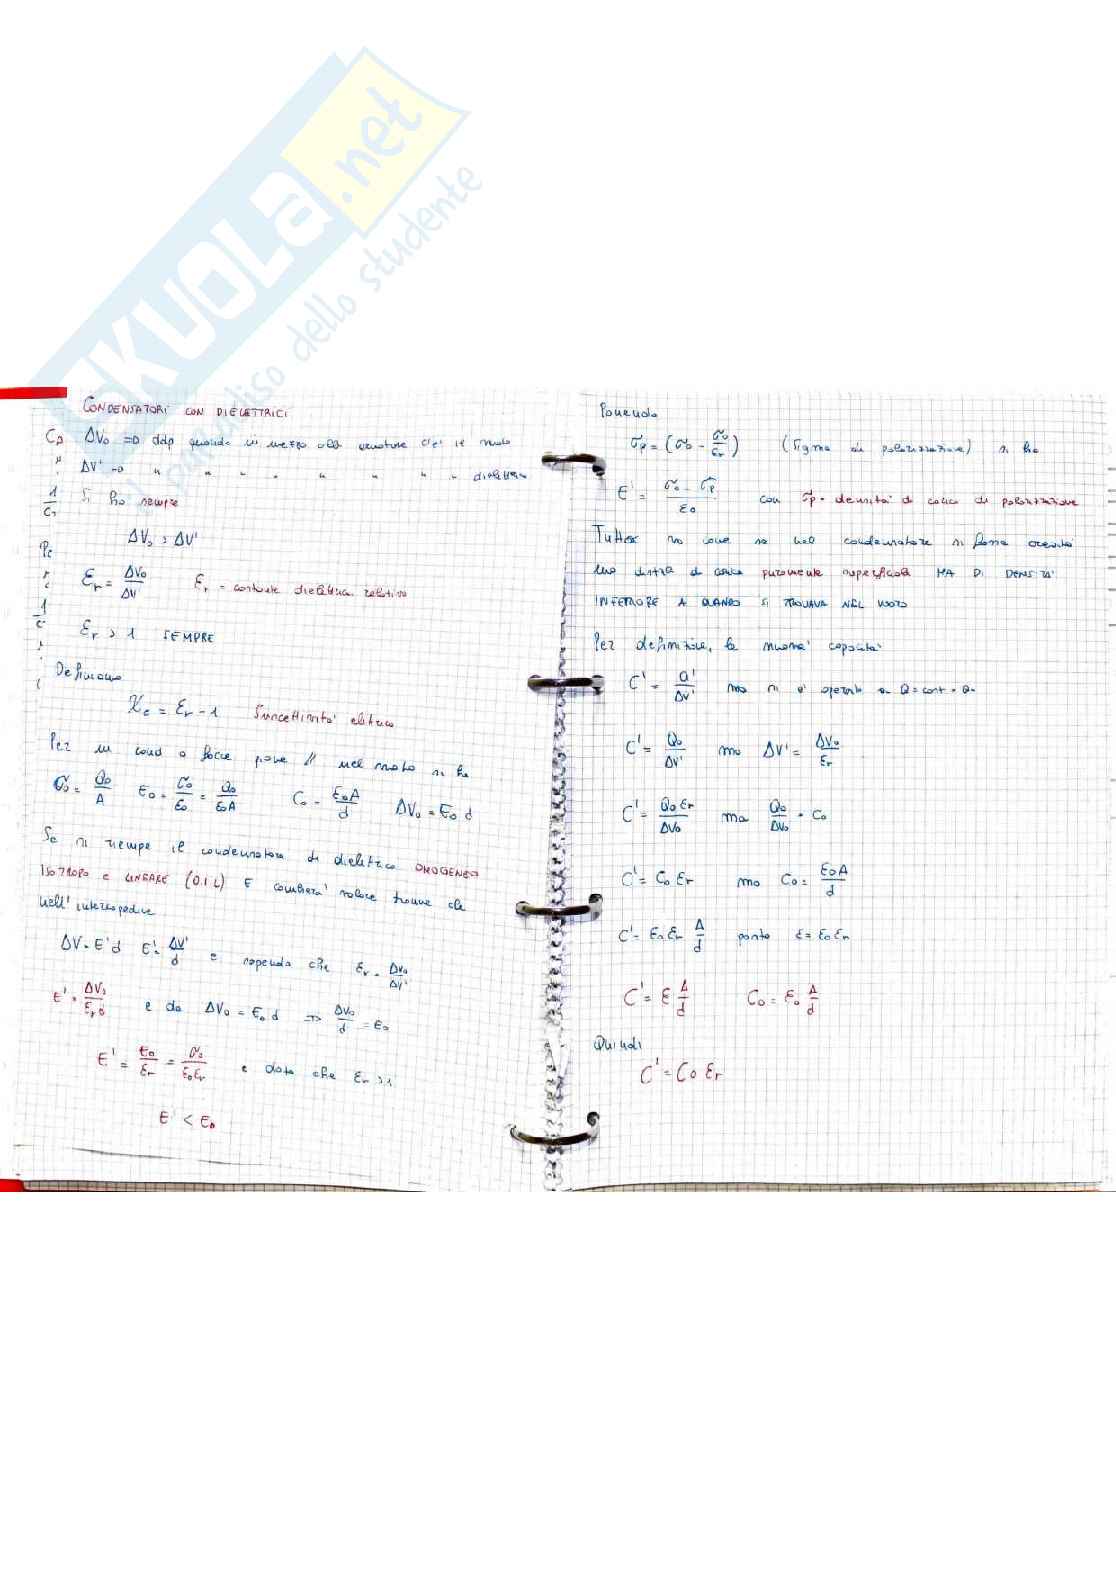 SKUOLA.net
paradiso dello studente
CONDENSATORI CON DIELETTRICI
ΔV₀ => ddp quando in mezzo alle armature c'è il vuoto
ΔV' -> " " " " " " " " dielettrico
Si ha sempre
ΔV₀ > ΔV'
εr = ΔV₀/ΔV' εr = costante dielettrica relativa
εr > 1 SEMPRE
Definiamo
χe = εr - 1 Suscettività elettrica
Per un cond a facce piane // nel vuoto si ha
σ₀ = Q₀/A E₀ = σ₀/ε₀ = Q₀/ε₀A C₀ = ε₀A/d ΔV₀ = E₀ d
Se si riempe il condensatore di dielettrico OMOGENEO
ISOTROPO e LINEARE (O.I.L) E cambierà valore
nell'intercapedine
ΔV = E'd E' = ΔV'/d e sapendo che εr = ΔV₀/ΔV'
E' = ΔV₀/εr d e da ΔV₀ = E₀ d => ΔV₀/d = E₀
E' = E₀/εr = σ₀/ε₀εr e dato che εr > 1
E' < E₀
Ponendo
σp = (σ₀ - σ₀/εr) (Sigma di polarizzazione) si ha
E' = σ₀ - σp/ε₀ con σp = densità di carica di polarizzazione
Tutto va come se nel condensatore si fosse creata
una di carica puramente superficiale MA DI DENSITA'
INFERIORE A QUANDO SI TROVAVA NEL VUOTO
Per definizione, la nuova capacità
C' = Q'/ΔV' ma si è operato a Q = cost = Q₀
C' = Q₀/ΔV' ma ΔV' = ΔV₀/εr
C' = Q₀ εr/ΔV₀ ma Q₀/ΔV₀ = C₀
C' = C₀ εr ma C₀ = ε₀A/d
C' = ε₀ εr A/d posto ε = ε₀ εr
C' = ε A/d C₀ = ε₀ A/d
Quindi
C' = C₀ εr